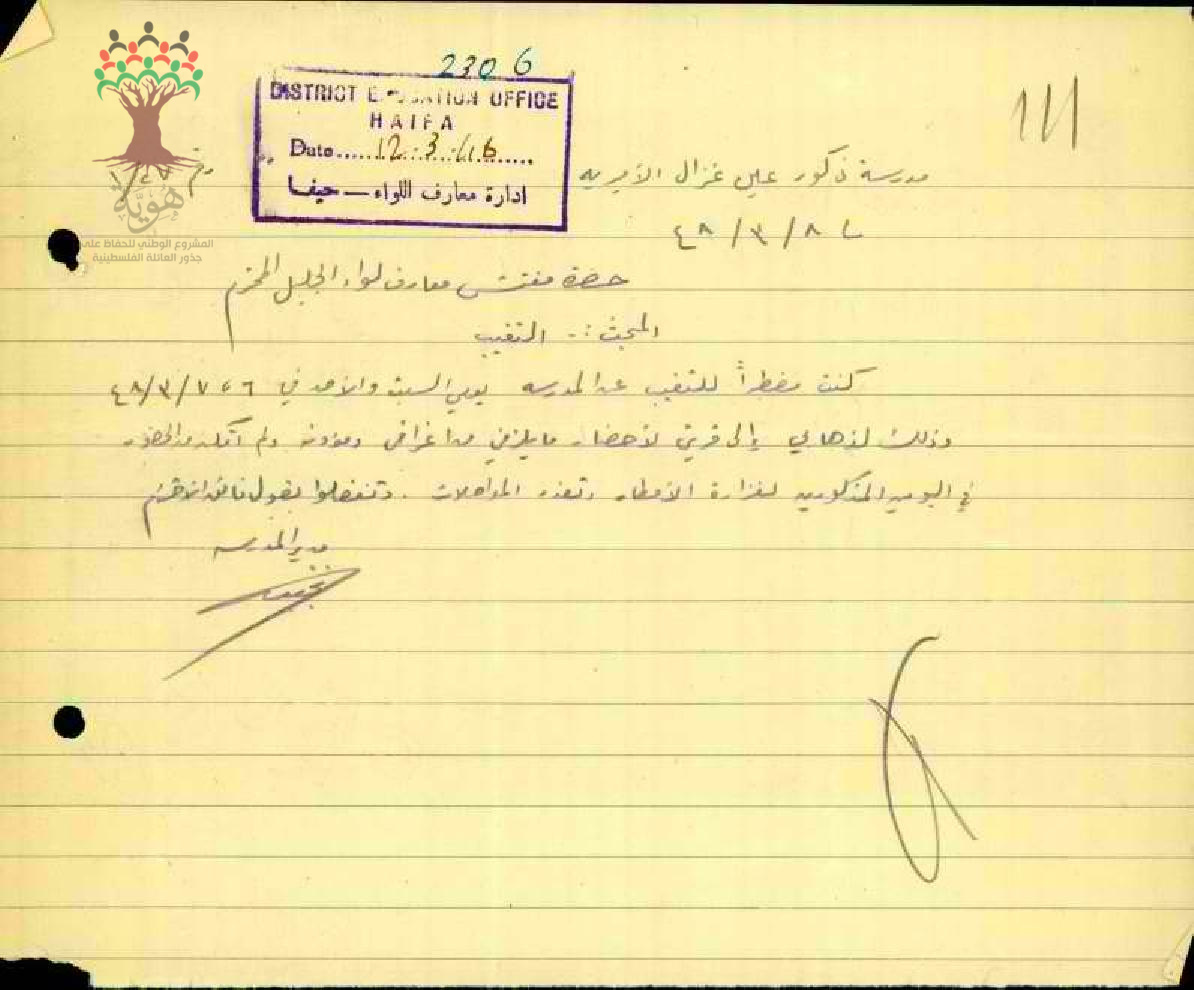 2306
DISTRICT EDUCATION OFFICE
HAIFA
Date..... 12.3.46 .....
ادارة معارف اللواء — حيفا
111
هُويّة
المشروع الوطني للحفاظ على
جذور العائلة الفلسطينية
رقم
مدرسة ذكور عين غزال الأميرية
٤٨/٣/٨
حضرة مفتش معارف لواء الجليل المحترم
المبحث :- التغيب
كنت مضطراً للتغيب عن المدرسه يومي السبت والأحد في ٦ ، ٤٨/٣/٧
وذلك لذهابي إلى قريتي لأحضار ما يلزمني من اغراض ومؤونه ولم أتمكن من الحضور
في اليومين المذكورين لغزارة الأمطار وتعذر المواصلات . وتفضلوا بقبول فائق الاحترام
مدير المدرسه